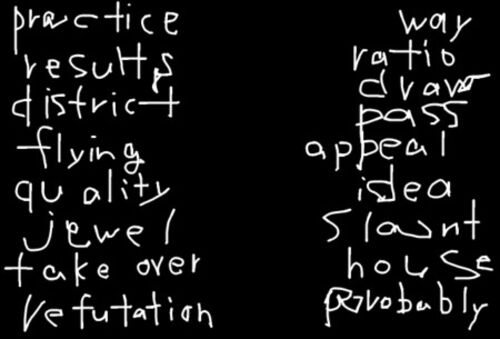 practice
results
district
flying
quality
jewel
take over
refutation
way
ratio
draw
pass
appeal
idea
house
probably